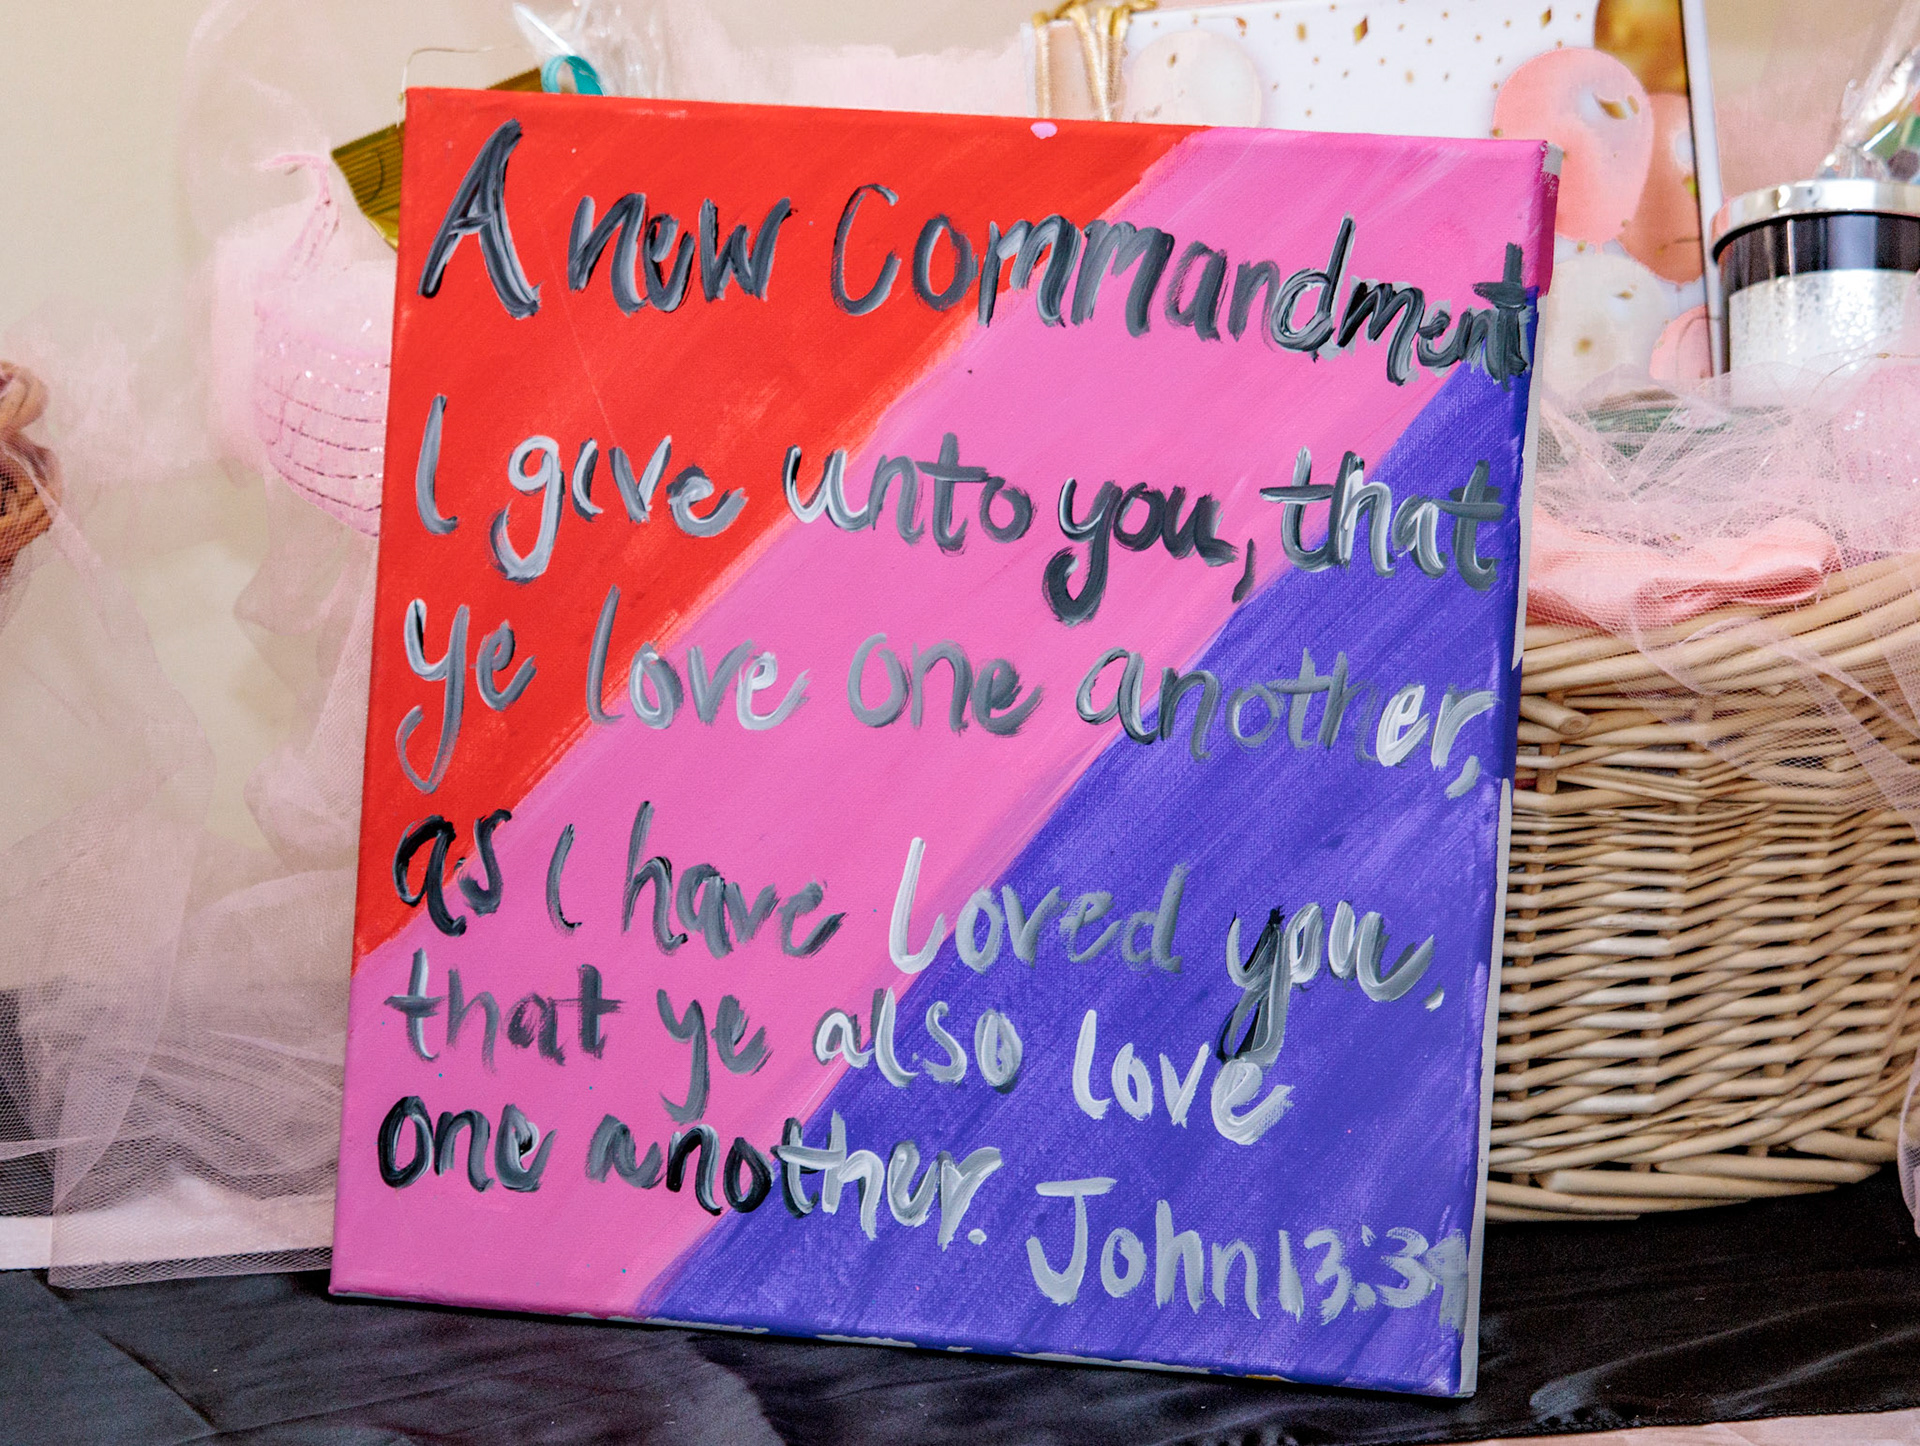 A new Commandment
I give unto you, that
ye love one another,
as I have loved you.
that ye also love
one another. John 13:34